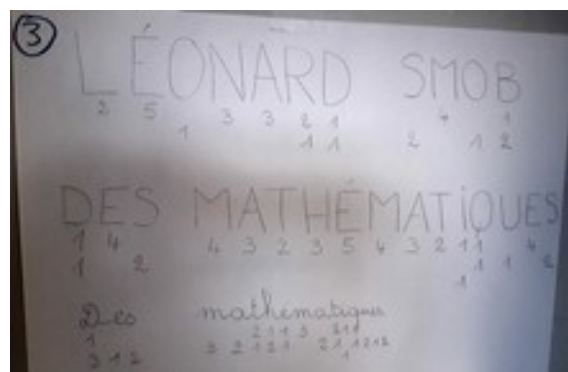 3
LÉONARD SMOB
2 5 3 3 2 1 4 1
1 1 1 2 1 2
DES MATHÉMATiQUES
1 4 4 3 2 3 5 4 3 2 1 1 4
1 2 1 1 2
1
Des mathématiques
1 2 1 1 3 2 1 1
3 1 2 3 2 1 2 1 2 1 1 2 1 2
1